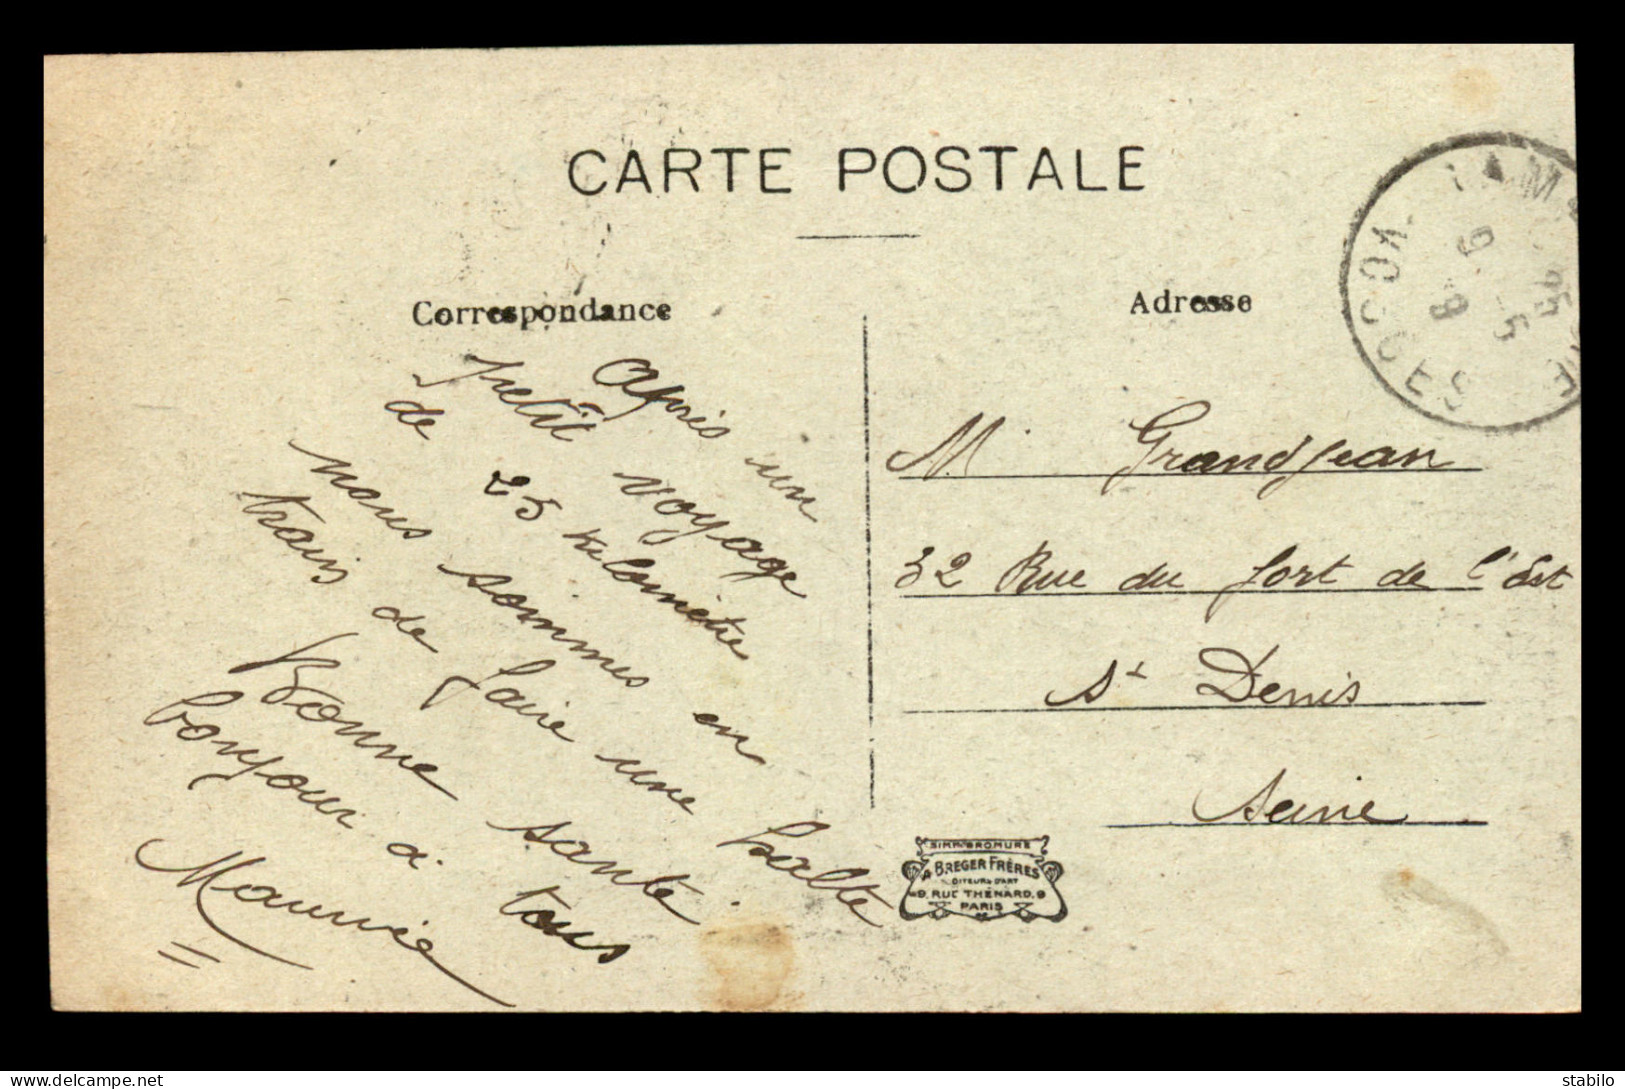 CARTE POSTALE
Correspondance
Après un
petit voyage
de 25 kilomètre
nous sommes en
train de faire une halte
Bonne santé
bonjour à tous
Maurice
Adresse
M. Grandjean
32 Rue du fort de l'Est
St Denis
Seine
VOSGES
SIMILI-BROMURE
A. BREGER FRÈRES
EDITEURS D'ART
9, RUE THÉNARD, 9
PARIS
delcampe.net
stabilo